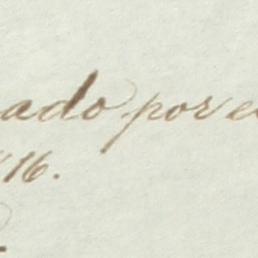 ado por e
16.